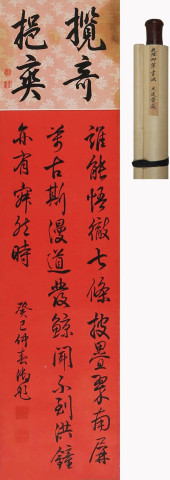 攬奇
挹爽
誰能悟徹七條披疊翠南屏
萬古斯漫道發鯨聞不到洪鐘
亦有寂然時
癸巳仲春御筆